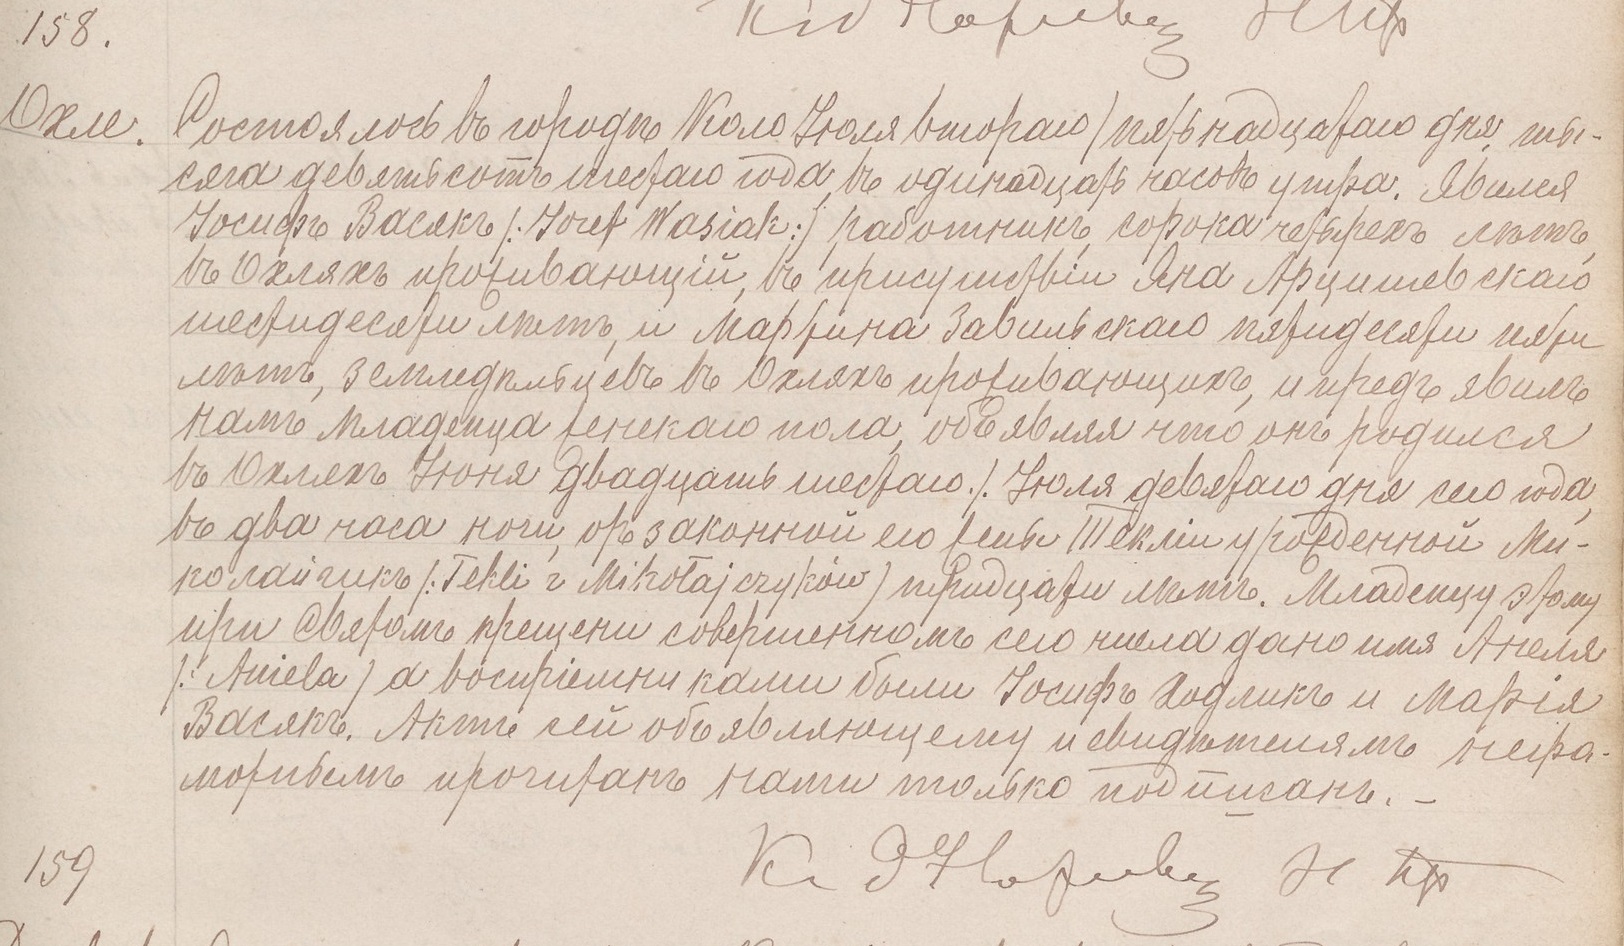 158.
Охле. Состоялось въ городѣ Коло Іюля втораго / пятьнадцатаго дня, ты-
сяча девятьсотъ шестаго года, въ одинадцать часовъ утра. Явился
Іосифъ Васякъ /: Józef Wasiak :/ работникъ, сорока четырехъ лѣтъ,
въ Охляхъ проживающій, въ присутствіи Яна Арцишевскаго
шестидесяти лѣтъ, и Мартина Завильскаго пятидесяти пяти
лѣтъ, земледѣльцевъ въ Охляхъ проживающихъ, и предъявилъ
намъ младенца женскаго пола, объявляя что онъ родился
въ Охляхъ Іюня двадцать шестаго / Іюля девятаго дня сего года,
въ два часа ночи, отъ законной его жены Теклии урожденной Ми-
колайчикъ /: Tekli z Mikołajczyków / тридцати лѣтъ. Младенцу этому
при Святомъ крещени совершенномъ сего числа дано имя Анеля
/: Aniela / а воспріемниками были Іосифъ Ходликъ и Марія
Васякъ. Актъ сей объявляющему и свидѣтелямъ негра-
мотнымъ прочитанъ нами только подписанъ. –
159